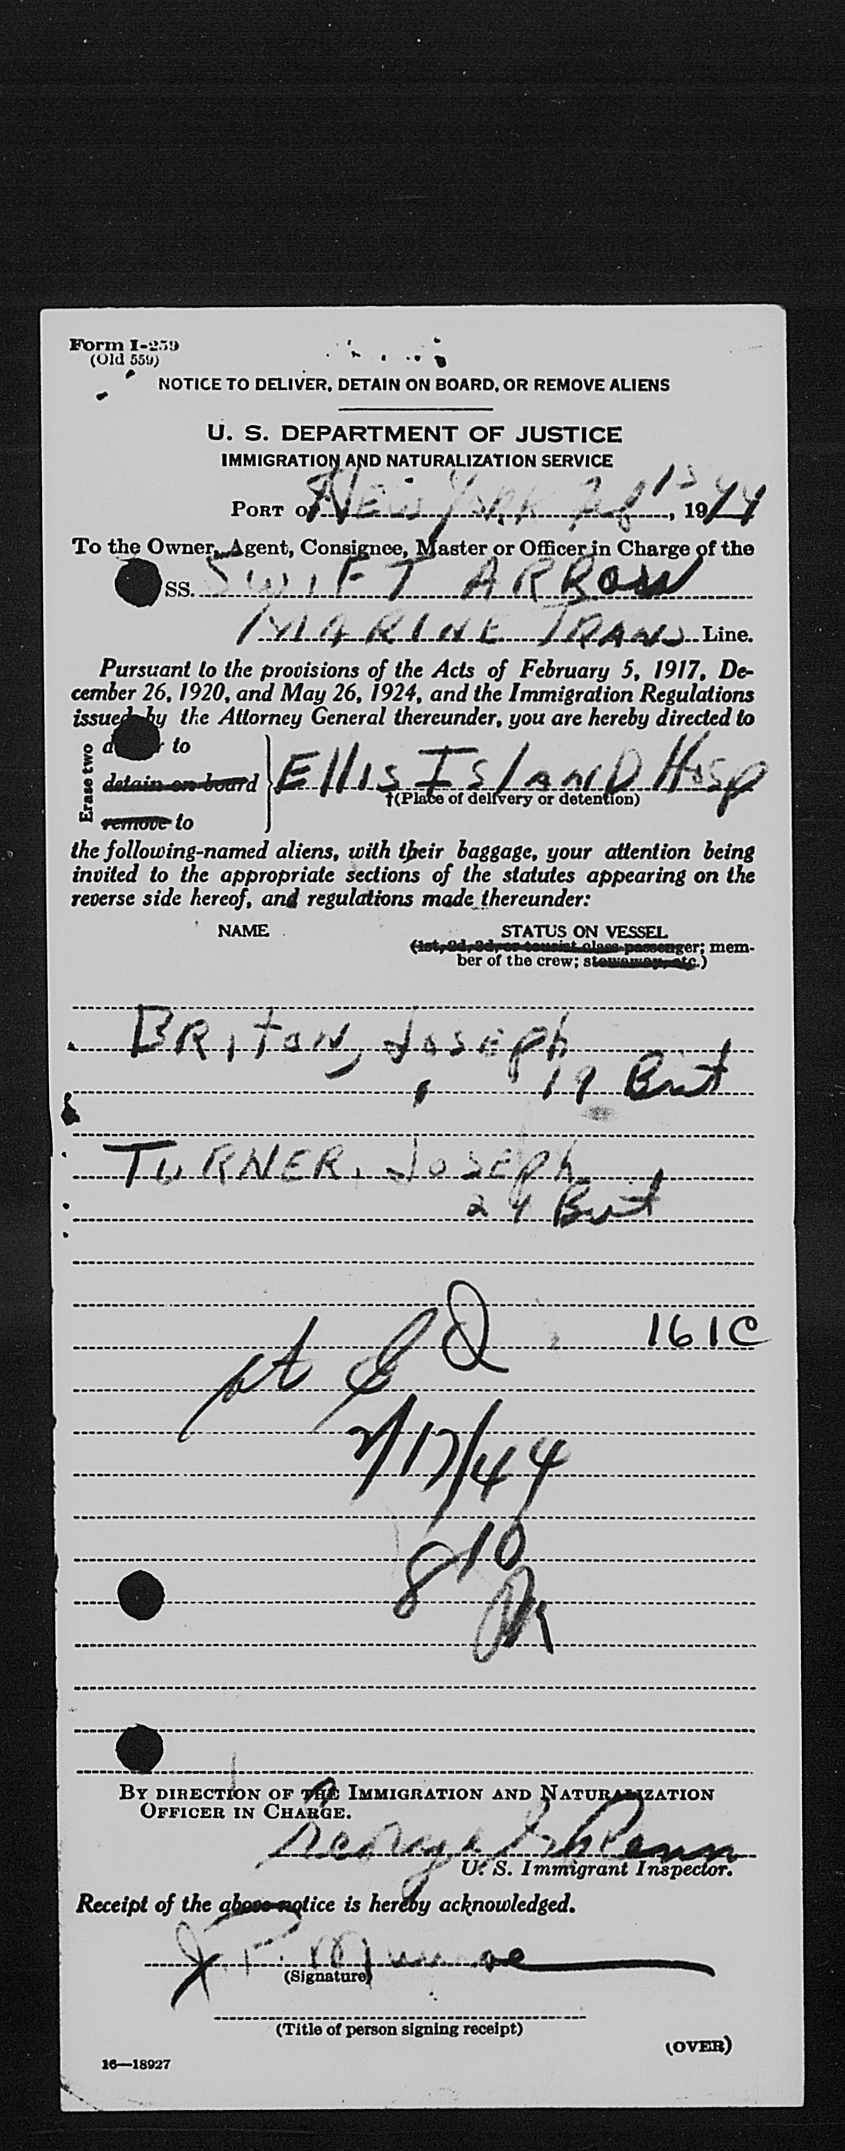 Form I-259
(Old 559)
NOTICE TO DELIVER, DETAIN ON BOARD, OR REMOVE ALIENS
U. S. DEPARTMENT OF JUSTICE
IMMIGRATION AND NATURALIZATION SERVICE
PORT OF New York Feb 15, 1944
To the Owner, Agent, Consignee, Master or Officer in Charge of the
SS. SWIFT ARROW
MARINE TRANS Line.
Pursuant to the provisions of the Acts of February 5, 1917, De-
cember 26, 1920, and May 26, 1924, and the Immigration Regulations
issued by the Attorney General thereunder, you are hereby directed to
Erase two
to
detain on board
remove to
Ellis Island Hosp
†(Place of delivery or detention)
the following-named aliens, with their baggage, your attention being
invited to the appropriate sections of the statutes appearing on the
reverse side hereof, and regulations made thereunder:
NAME STATUS ON VESSEL
(1st, 2d, 3d, or tourist class passenger; mem-
ber of the crew; stowaway, etc.)
BRITON, Joseph
19 Brit
TURNER, Joseph
24 Brit
161C
2/17/44
810
BY DIRECTION OF THE IMMIGRATION AND NATURALIZATION
OFFICER IN CHARGE.
George
U. S. Immigrant Inspector.
Receipt of the above notice is hereby acknowledged.
J. P. Munroe
(Signature)
(Title of person signing receipt)
(OVER)
16—18927